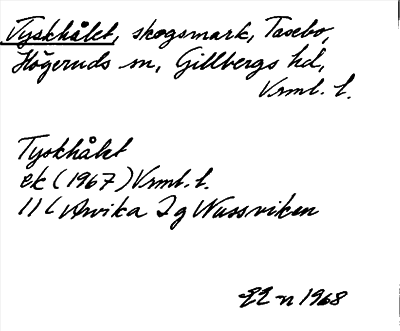 Tyskhålet, skogsmark, Tasebo,
Högeruds sn, Gillbergs hd,
Vrml. l.
Tyskhålet
ek (1967) Vrml. l.
11 C Arvika 2 g Nussviken
n 1968